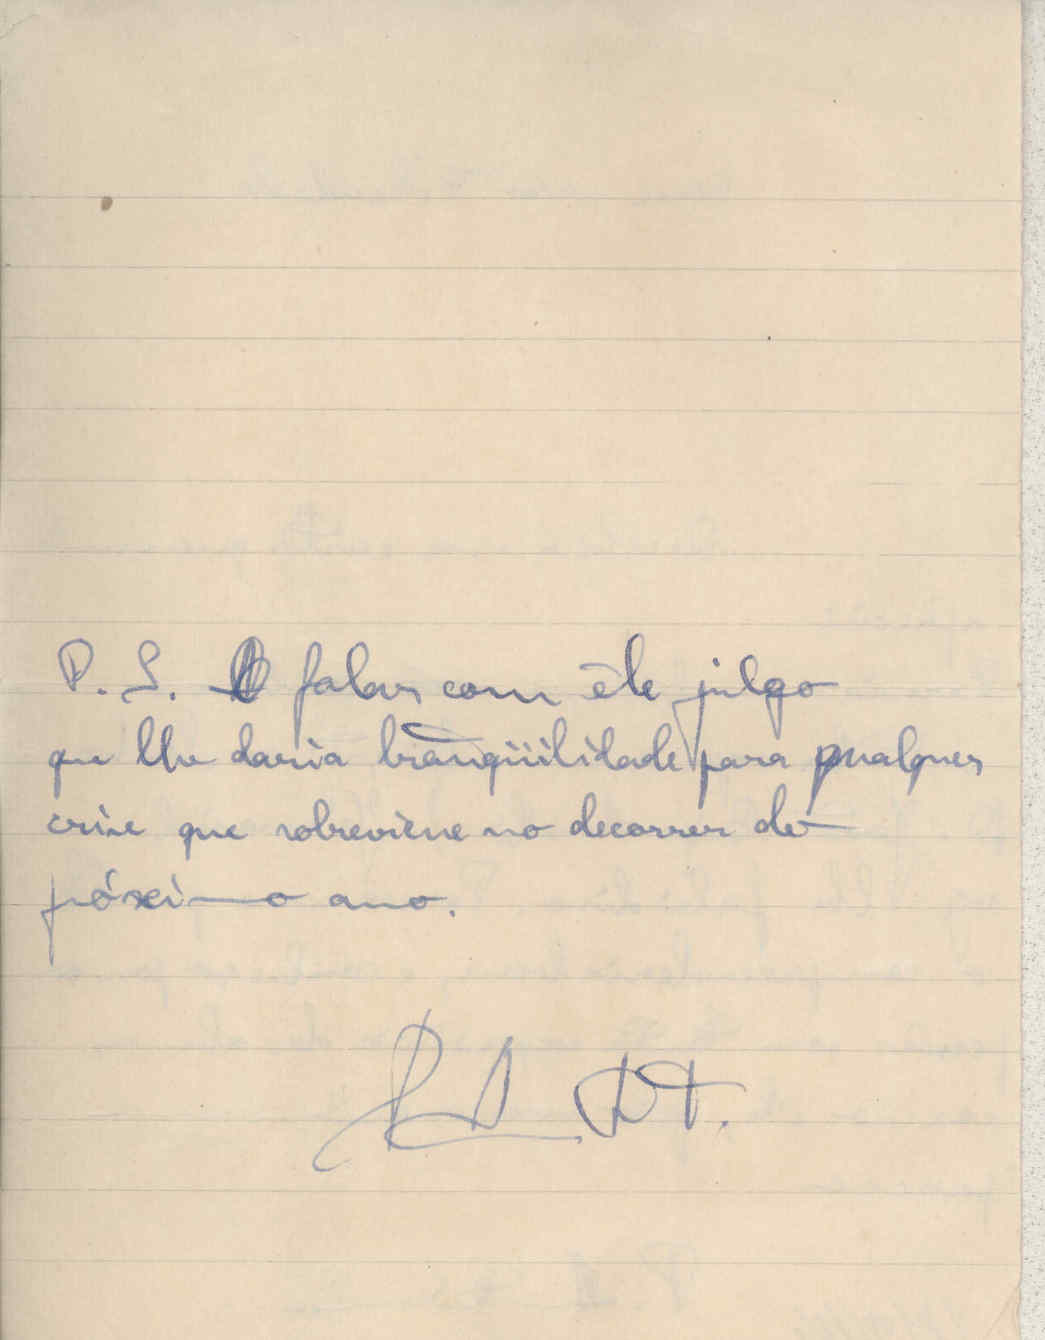 P. S. O falar com êle julgo
que lhe daria tranqüilidade para qualquer
crise que sobreviene no decorrer do
próximo ano.